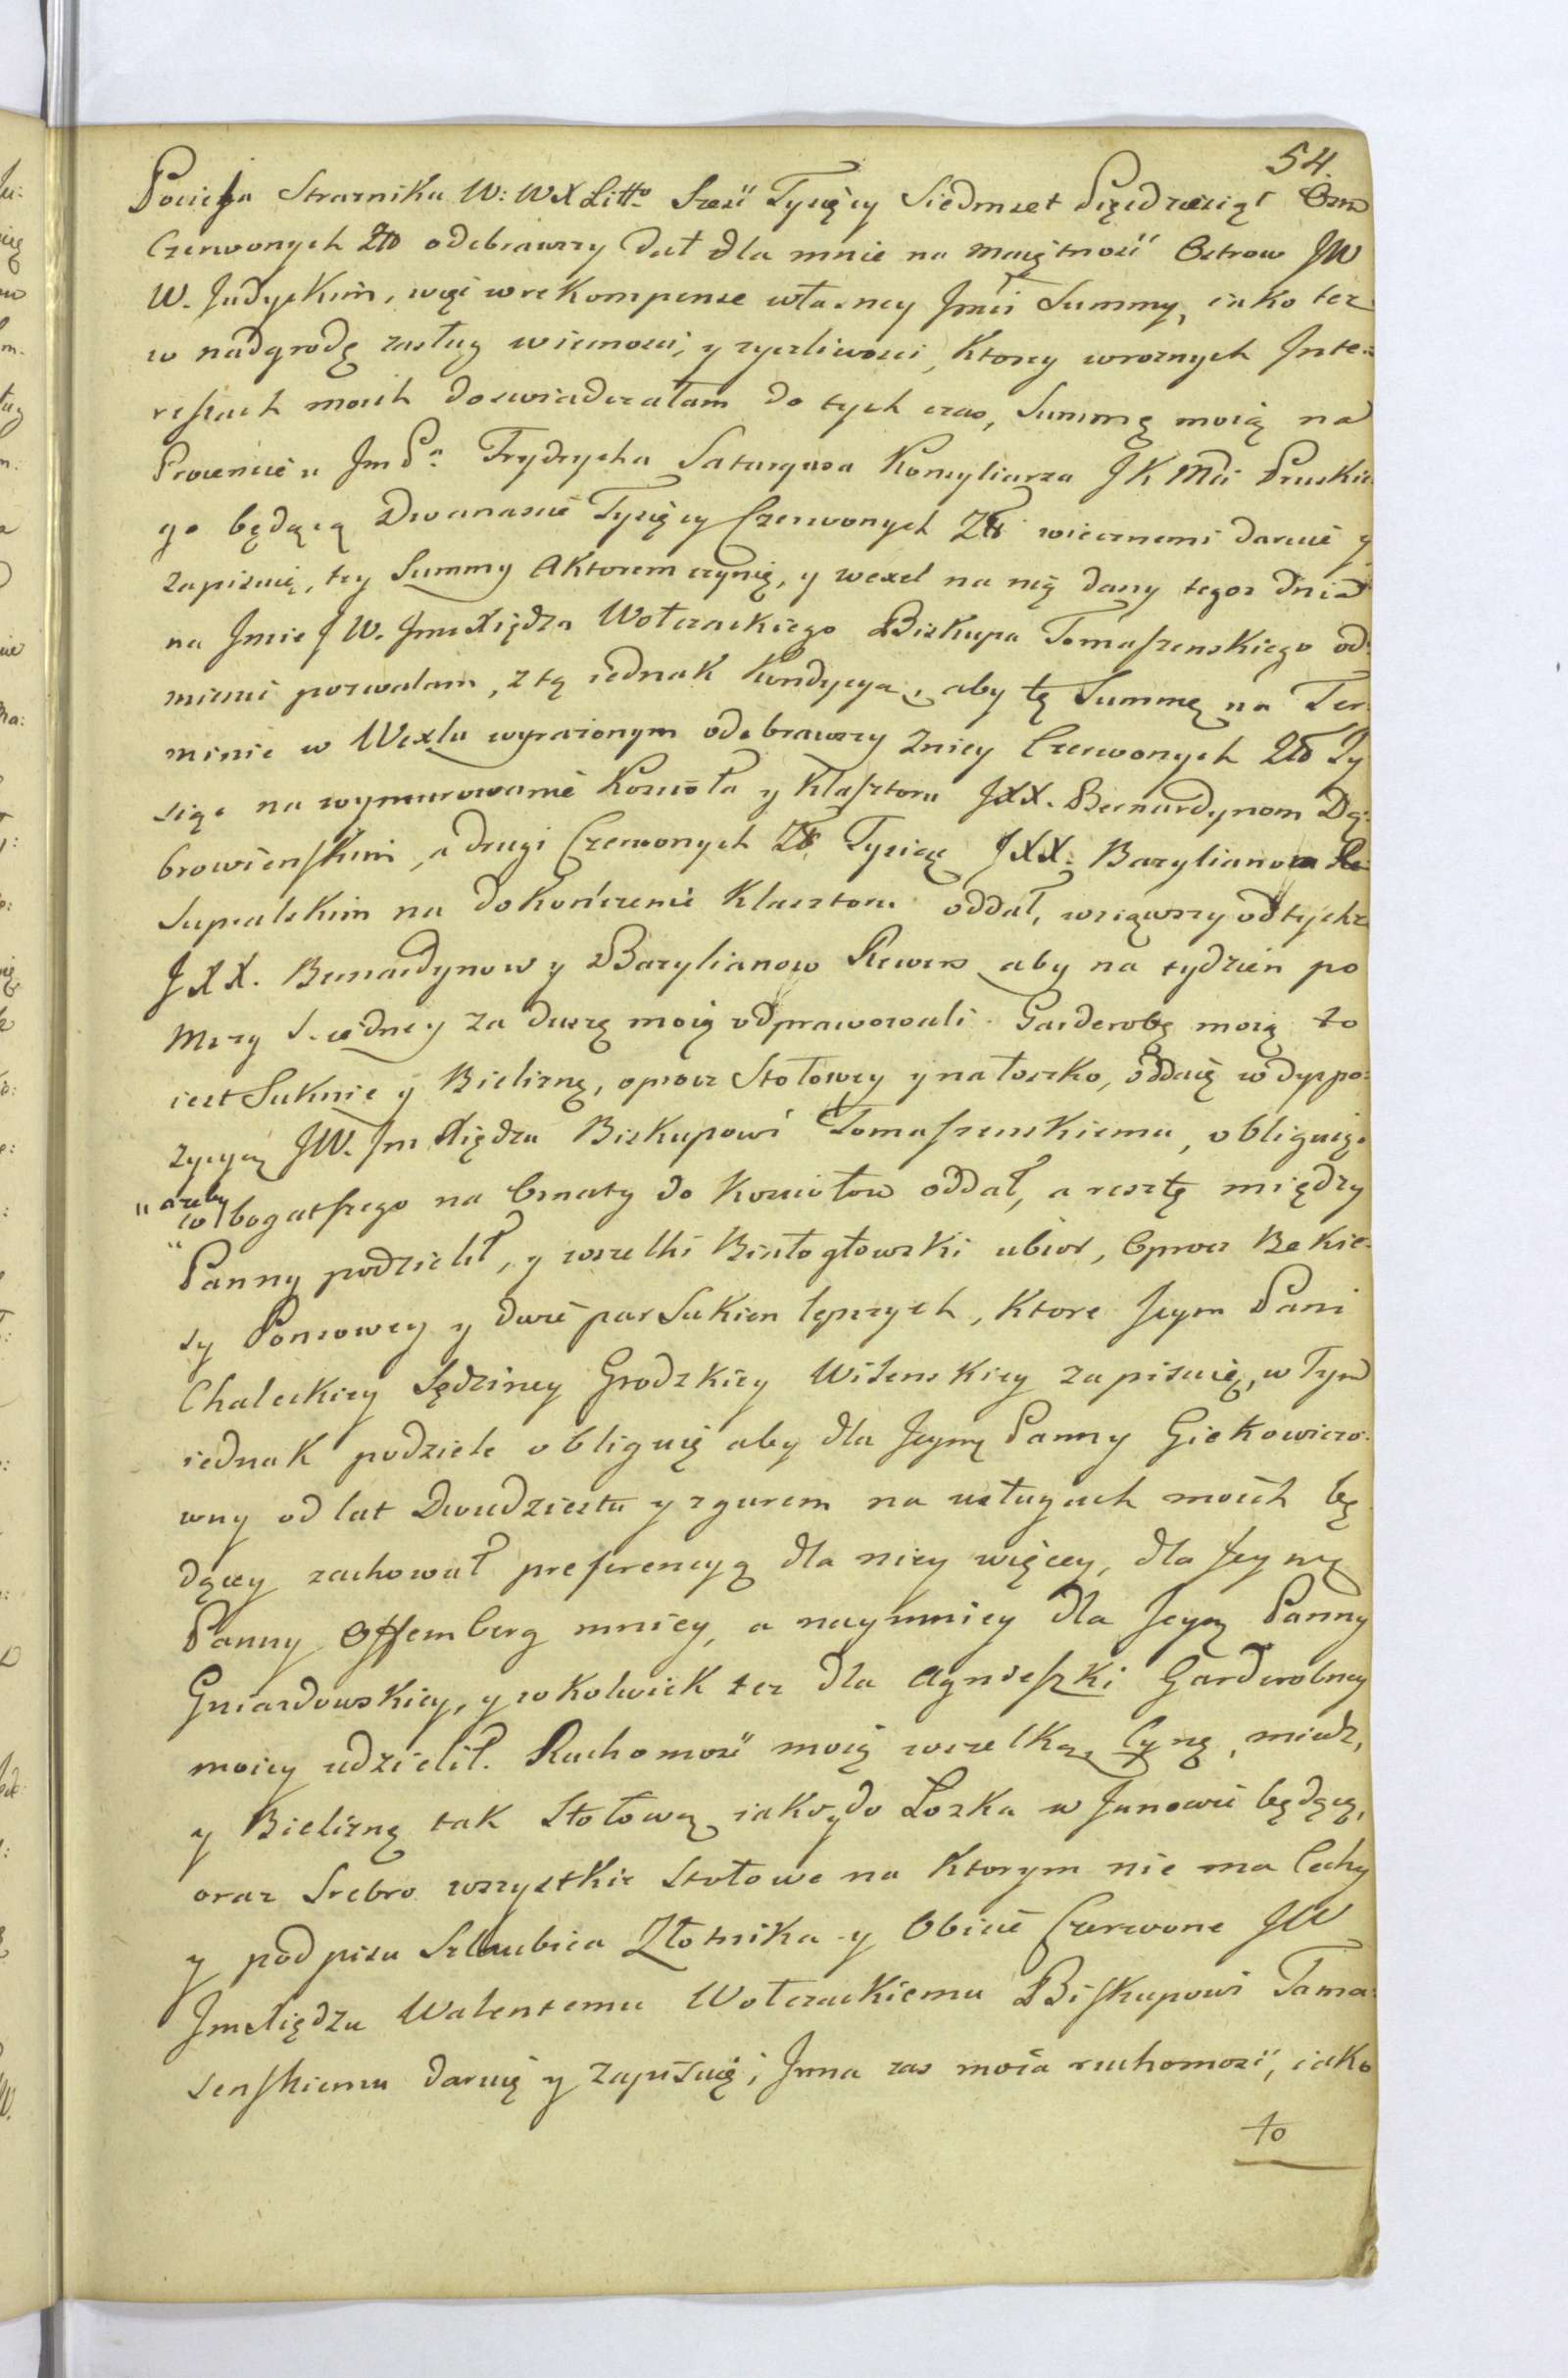 54.
Pocieja Strażnika W: W X Litto Sześć Tysięcy Siedmset Pięcdziesiąt Osm
Czerwonych Złł odebrawszy dał dla mnie na maiętność Ostrow JW
W. Judyckim, więc w rekompense własney Jmci Summy, iako też
w nadgrodę zasług wiernosci, y zyczliwosci, Ktorey w roznych Inte:
ressach moich doswiadczałam do tych czas, Summę moią na
Prowencie u Jm Pa Frydrycha Saturgusa Konsyliarza J K Mci Pruskie
go będącą Dwanascie Tysięcy Czerwonych Złł wiecznemi daruię y
zapisuię, tey Summy Aktorem czynię, y wexel na nię dany tegoż dnia
na Jmie J W. Jmć Xiędza Wołczackiego Biskupa Tomaszenskiego od:
mienić pozwalam, z tą iednak Kondycyą, aby tę Summę na Ter:
minie w Wexlu wyrazonym odebrawszy zniey Czerwonych Złł Ty
siąc na wymurowanie Koscioła y Klasztoru JXX. Bernardynom Dą:
browienskim, a drugi Czerwonych Złł Tysiąc JXX. Bazylianom Re
Supralskim na dokończenie Klasztoru oddał, wziąwszy od tychże
JXX. Bernardynow y Bazylianow Rewers aby na tydzien po
Mszy S. iedney za duszę moią odprawowali. Garderobę moią to
iest Suknie y Bieliznę, oprocz Stołowey y na łoszko, oddaię w dyspo:
zycyą JW. Jm Xiędzu Biskupowi Tomaszenskiemu, obliguiąc
"ażeby co bogatszego na Ornaty do Kosciołow oddał, a resztę między
" Panny podzielił, y wszelki Białogłowski ubior, Oprocz Bekie:
sy Ponsowey y dwie par Sukien lepszych, Ktore Jeym Pani
Chaleckiey Sędziney Grodzkiey Wilenskiey zapisuię, w Tym
iednak podziele obliguię aby dla Jeymę Panny Giekowiczo:
wny od lat Dwudziestu y zgurem na usługach moich bę
dącey zachował preferencyą dla niey więcey, dla Jeymę
Panny Offemberg mniey, a naymniey dla Jeymę Panny
Gniazdowskiey, y cokolwiek też dla Agnieszki Garderobney
moiey udzielił. Ruchomość moią wszelką, Cynę, miedź,
y Bieliznę tak Stołową iako y do Łozka w Janowie będącą,
oraz Srebro wszystkie Stołowe na Ktorym nie ma Cechy
y podpisu Szlaubica Złotnika y Obicie Czerwone JW
Jm Xiędzu Walentemu Wołczackiemu Biskupowi Toma:
senskiemu daruię y zapisuię; Inna zas moia ruchomość, iako
to